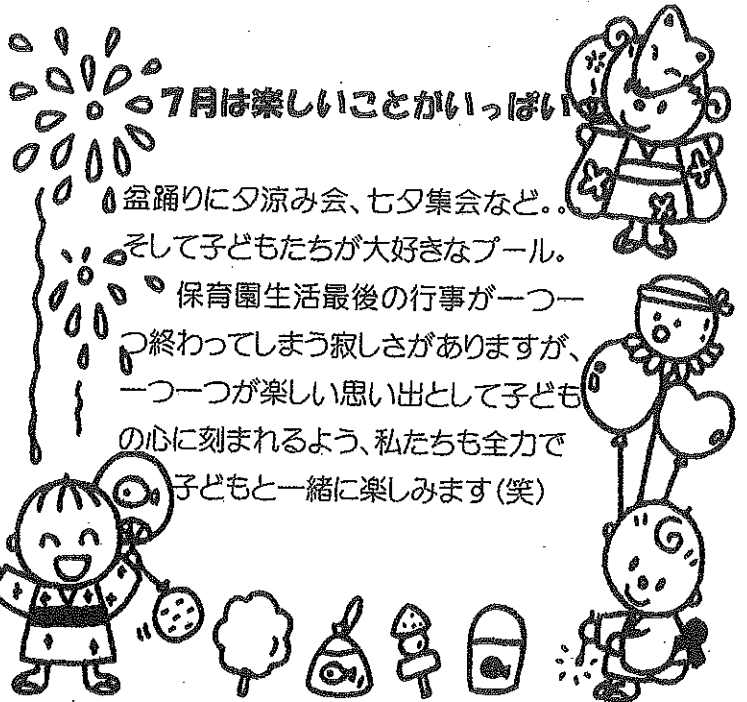 7月は楽しいことがいっぱい
盆踊りに夕涼み会、七夕集会など。。
そして子どもたちが大好きなプール。
保育園生活最後の行事が一つ一
つ終わってしまう寂しさがありますが、
一つ一つが楽しい思い出として子ども
の心に刻まれるよう、私たちも全力で
子どもと一緒に楽しみます(笑)